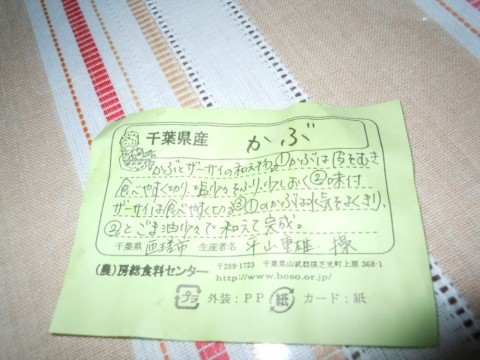 千葉県産 かぶ
かぶとザーサイの和えもの①かぶは皮をむき
食べやすく切り、塩少々をふり、少しおく②味付
ザーサイは食べやすく切る③①のかぶは水気をよくきり、
②とごま油少々で和えて完成。
千葉県 匝瑳市 生産者名 平山重雄・操
(農)房総食料センター 〒289-1723 千葉県山武郡横芝光町上原368-1
http://www.boso.or.jp/
プラ 外装:PP 紙 カード:紙